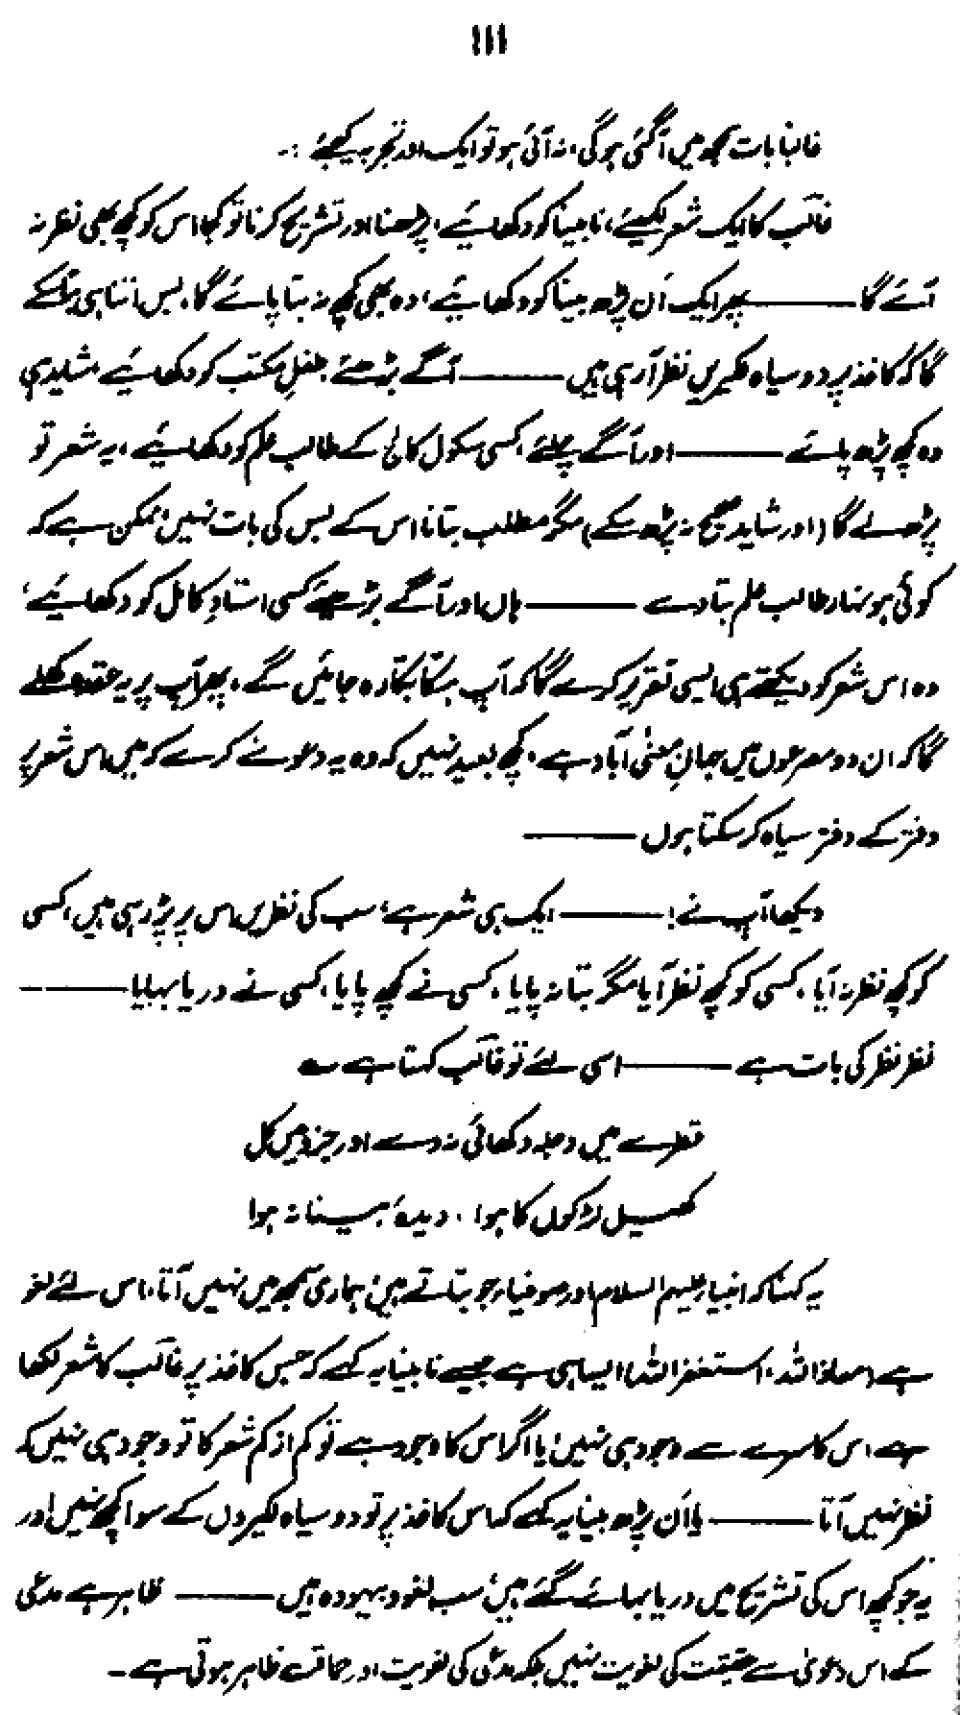 ۱۱۱
غالباً بات سمجھ میں آگئی ہوگی، نہ آئی ہو تو ایک اور تجربہ کیجئے :۔
غالب کا ایک شعر لکھیئے، نابینا کو دکھائیے، پڑھنا اور تشریح کرنا تو کجا اس کو کچھ بھی نظر نہ
آئے گا ——— پھر ایک اَن پڑھ بینا کو دکھائیے، وہ بھی کچھ نہ بتا پائے گا، بس اتنا ہی بتا سکے
گا کہ کاغذ پر دو سیاہ لکیریں نظر آرہی ہیں ——— آگے بڑھئے، طفلِ مکتب کو دکھائیے، شاید ہی
وہ کچھ پڑھ پائے ——— اور آگے چلئے، کسی سکول کالج کے طالب علم کو دکھائیے، یہ شعر تو
پڑھ لے گا (اور شاید صحیح نہ پڑھ سکے) مگر مطلب بتانا اس کے بس کی بات نہیں، ممکن ہے کہ
کوئی ہونہار طالب علم بتا دے ——— ہاں اور آگے بڑھیئے کسی استادِ کامل کو دکھائیے،
وہ اس شعر کو دیکھتے ہی ایسی تقریر کرے گا کہ آپ ہکّا بکّا رہ جائیں گے، پھر آپ پر یہ عقدہ کھلے
گا کہ ان دو مصرعوں میں جہانِ معنیٰ آباد ہے، کچھ بعید نہیں کہ وہ یہ دعوے کرے کہ میں اس شعر پر
دفتر کے دفتر سیاہ کر سکتا ہوں ———
دیکھا آپ نے! ——— ایک ہی شعر ہے، سب کی نظریں اس پر پڑ رہی ہیں، کسی
کو کچھ نظر نہ آیا، کسی کو کچھ نظر آیا مگر بتا نہ پایا، کسی نے کچھ پایا، کسی نے دریا بہایا ———
نظر نظر کی بات ہے ——— اسی لئے تو غالب کہتا ہے ؎
قطرے میں دجلہ دکھائی نہ دے اور جزو میں کل
کھیل لڑکوں کا ہوا، دیدۂ بینا نہ ہوا
یہ کہنا کہ انبیاء علیہم السلام اور صوفیاء جو بتاتے ہیں، ہماری سمجھ میں نہیں آتا، اس لئے لغو
ہے (معاذ اللہ، استغفراللہ) ایسا ہی ہے جیسے نابینا یہ کہے کہ جس کاغذ پر غالب کا شعر لکھا
ہے، اس کا سرے سے وجود ہی نہیں، یا اگر اس کا وجود ہے تو کم از کم شعر کا تو وجود ہی نہیں کہ
نظر نہیں آتا ——— یا اَن پڑھ بینا یہ کہے کہ اس کاغذ پر تو دو سیاہ لکیروں کے سوا کچھ نہیں اور
یہ جو کچھ اس کی تشریح میں دریا بہائے گئے ہیں، سب لغو و بیہودہ ہیں ——— ظاہر ہے مدعی
کے اس دعویٰ سے حقیقت کی لغویت نہیں بلکہ مدعی کی لغویت اور حماقت ظاہر ہوتی ہے۔